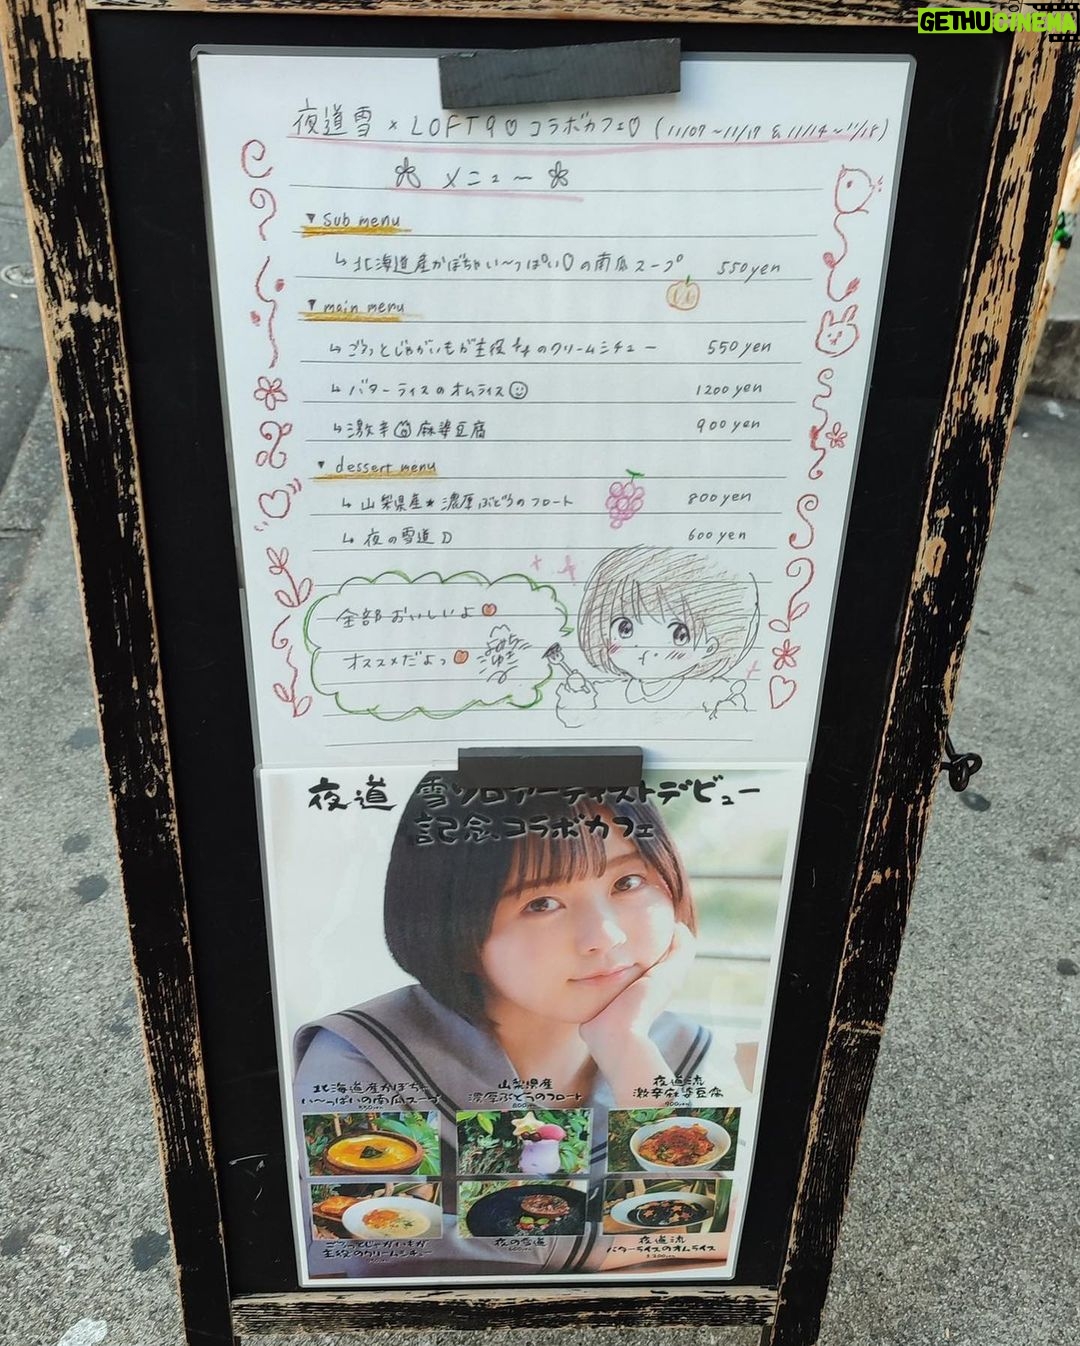 GETHUCINEMA
夜道雪×LOFT9♡コラボカフェ♡(11/07~11/17 & 11/14~11/18)
メニュー
▼ Sub menu
↳ 北海道産かぼちゃい~っぱい♡の南瓜スープ 550yen
▼ main menu
↳ ごろっとじゃがいもが主役のクリームシチュー 550yen
↳ バターライスのオムライス 1200yen
↳ 激辛麻婆豆腐 900yen
▼ dessert menu
↳ 山梨県産★濃厚ぶどうのフロート 800yen
↳ 夜の雪道 600yen
全部おいしいよ
オススメだよっ
夜道雪ソロアーティストデビュー
記念コラボカフェ
北海道産かぼちゃ
い~っぱいの南瓜スープ
550yen
山梨県産
濃厚ぶどうのフロート
800yen
夜道流
激辛麻婆豆腐
900yen
ごろっとじゃがいもが
主役のクリームシチュー
夜の雪道
600yen
夜道流
バターライスのオムライス
1,200yen